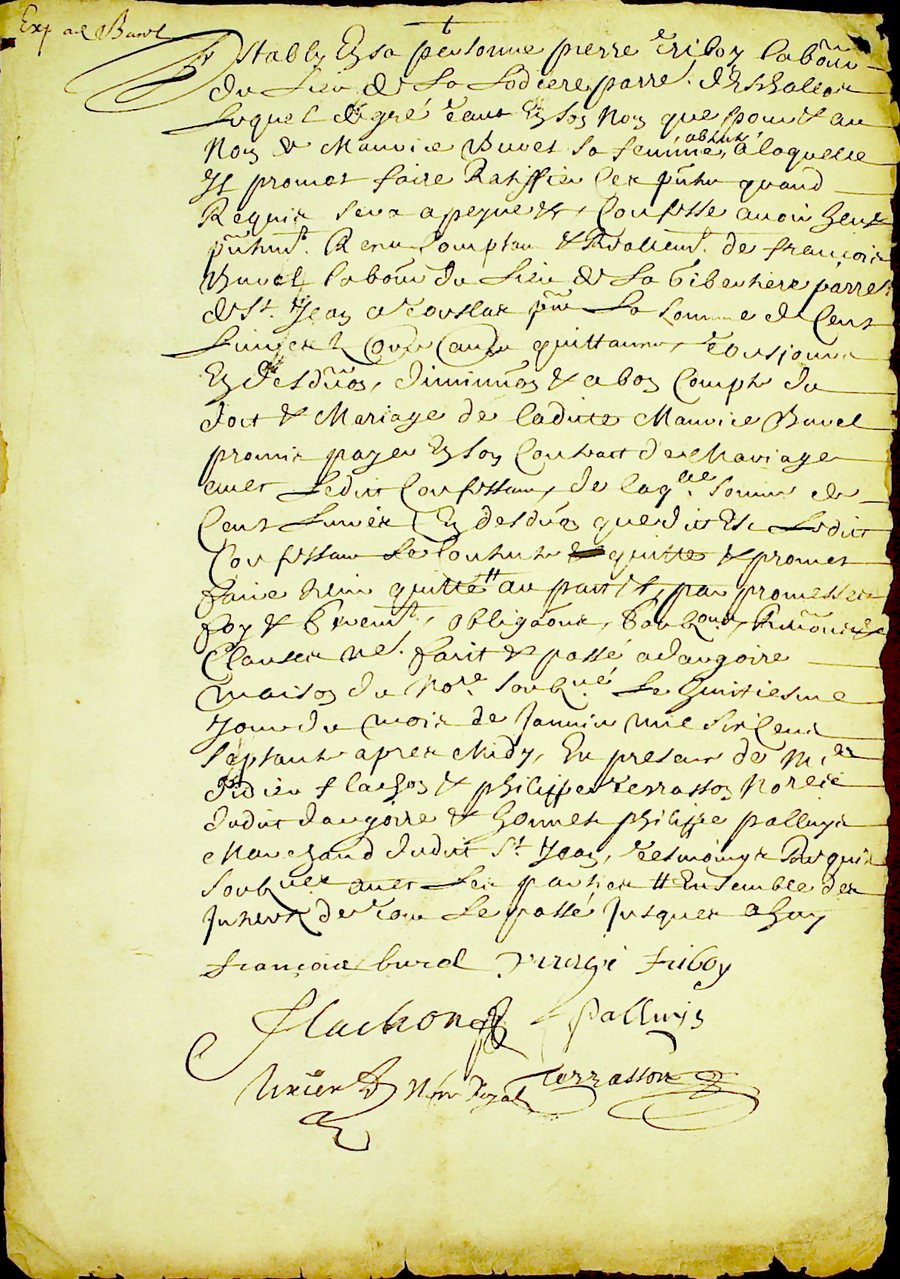 Exp au Burel
Estably En sa personne pierre Triboy labour
du Lieu de La Lodiere parre. d'Eschallas
Lequel de gré tant En son Nom que pour & au
Nom de Maurice Burel sa femme, absente, a laquelle
Il promet faire Ratiffier Ces pntes quand
Requis sera a peyne &, Confesse avoir heu &
pntemt. Receu Comptan & Reallemt. de françois
Burel labour du Lieu de La Giberliere parre.
de St. Jean a Touslas pnt La somme de Cent
Livres quittance, Tousjours
En desdon, diminuon & a bon Compte du
doct & Mariage de ladicte Maurice Burel
promis payer En son Contract de Mariage
avec Ledict Confessant, de laqlle. somme de
Cent Livres En desdon que dict Est Ledict
Confessant Se Contente quitte & promet
faire tenir quitte au par &, par promesses
foy & sermt, obligaons, soubzons, Renonons
Clauses ne. faict & passé a dargoire
maison du Nore. soubzné Le huitiesme
Jour du mois de Janvier mil six Cent
septante apres Midy, En presence de Mes
Didier flachon & philippe Terrasson Nores
dudict dargoire & honnes philippe palluys
Marchand dudict St Jean, Tesmoings Requis
soubznes avec Les parties # Ensemble des
Interetz de tout Le passé Jusques a huy
françois burel Triboy
flachon palluys
Nore Royal Terrasson